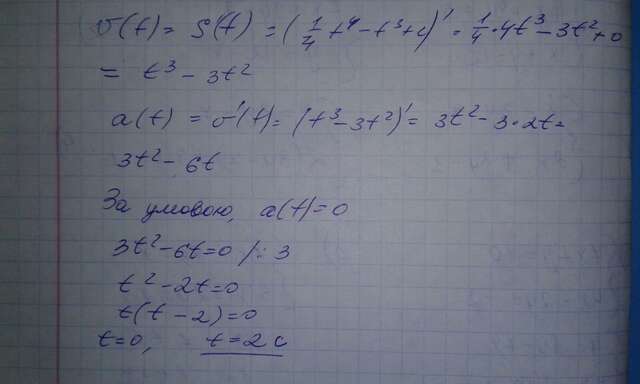 v(t) = S'(t) = (1/4 t⁴ - t³ + c)' = 1/4 · 4t³ - 3t² + 0
= t³ - 3t²
a(t) = v'(t) = (t³ - 3t²)' = 3t² - 3·2t =
3t² - 6t
За умовою, a(t) = 0
3t² - 6t = 0 /: 3
t² - 2t = 0
t(t - 2) = 0
t = 0, t = 2 c